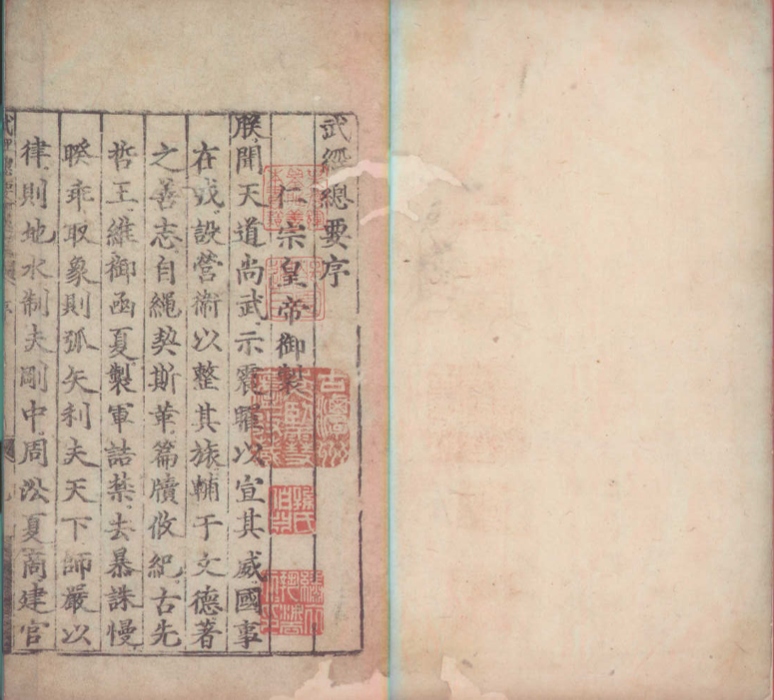 武經總要序
仁宗皇帝御製
朕聞天道尚武示震曜以宣其威國事
在戎設營衛以整其旅輔于文德著
之善志自繩契斯革篇牘攸紀古先
哲王維御函夏製軍詰禁去暴誅慢
暌乖取象則弧矢利夫天下師嚴以
律則地水制夫剛中周沿夏商建官